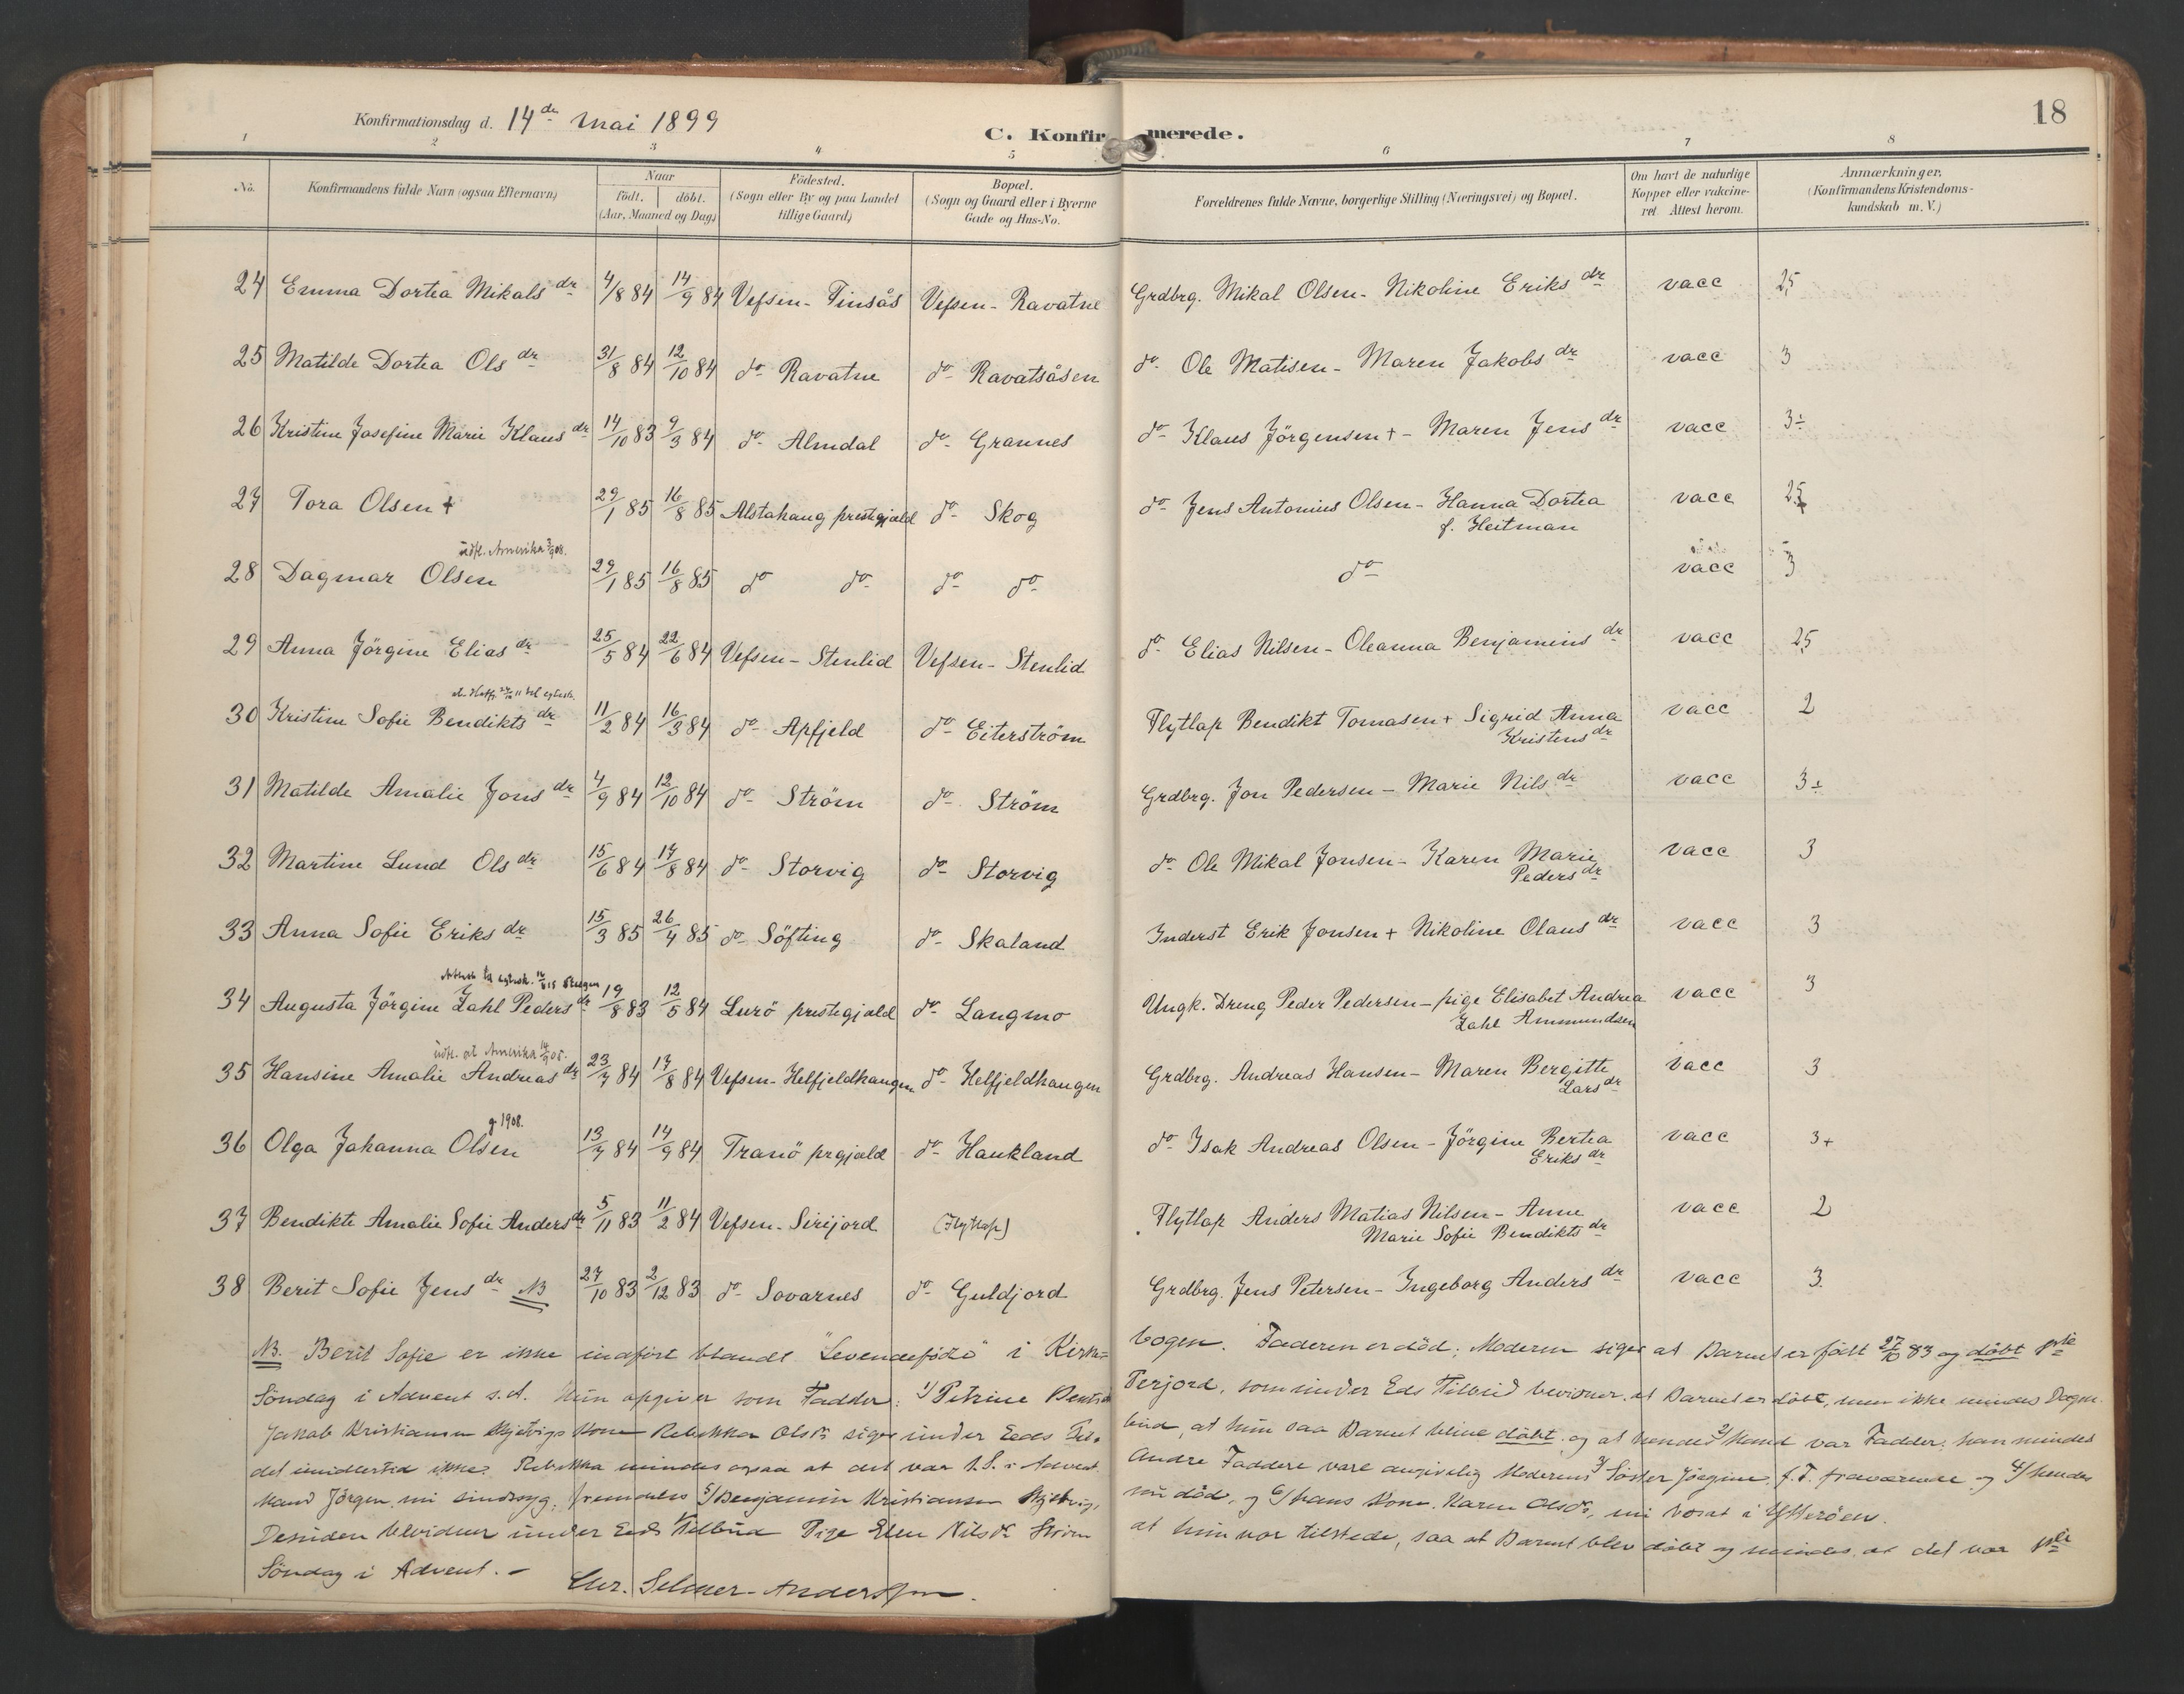 Konfirmationsdag d. 14de Mai 1899
C. Konfirmerede.
18
1 2 3 4 5 6 7 8
No. Konfirmandens fulde Navn (ogsaa Efternavn) Naar født. døbt. (Aar, Maaned og Dag) Fødested. (Sogn eller By og paa Landet tillige Gaard) Bopæl. (Sogn og Gaard eller i Byerne Gade og Hus-No. Forældrenes fulde Navne, borgerlige Stilling (Næringsvei) og Bopæl. Om havt de naturlige Kopper eller vakcineret. Attest herom. Anmærkninger. (Konfirmandens Kristendomskundskab m. V.)
24 Emma Dortea Mikalsdr 4/8 84 14/9 84 Vefsen - Finsås Vefsen - Ravatne Grdbrg. Mikal Olsen - Nikoline Eriksdr vacc 2,5
25 Matilde Dortea Olsdr 31/8 84 12/10 84 do Ravatne do Ravatsåsen do Ole Matisen - Maren Jakobsdr vacc 3
26 Kristine Josefine Marie Klausdr 14/10 83 9/3 84 do Almdal do Grannes do Klaus Jörgensen + - Maren Jensdr vacc 3÷
27 Tora Olsen + 29/1 85 16/8 85 Alstahaug prestegjæld do Skog do Jens Antonius Olsen - Hanna Dortea f. Heitman vacc 2,5
udfl. Amerika 3/9 08.
28 Dagmar Olsen 29/1 85 16/8 85 do do do do do vacc 3
29 Anna Jörgine Eliasdr 25/5 84 22/6 84 Vefsen - Stenlid Vefsen - Stenlid do Elias Nilsen - Oleanna Benjaminsdr vacc 2,5
30 Kristine Sofie Bendiktsdr 11/2 84 16/3 84 do Apfjeld do Eiterström Flytlap Bendikt Tomasen + Sigrid Anna Kristensdr vacc 2
31 Matilde Amalie Jonsdr 4/9 84 12/10 84 do Ström do Ström Grdbrg. Jon Pedersen - Marie Nilsdr vacc 3÷
32 Martine Lund Olsdr 15/6 84 17/8 84 do Storvig do Storvig do Ole Mikal Jonsen - Karen Marie Pedersdr vacc 3
33 Anna Sofie Eriksdr 15/3 85 26/4 85 do Söfting do Skaland Inderst Erik Jonsen + Nikoline Olausdr vacc 3
34 Augusta Jörgine Zahl Pedersdr 19/8 83 12/5 84 Lurö prestegjæld do Langmo Ungk. Dreng Peder Pedersen - pige Elisabet Andrea Zahl Ammundsen vacc 3
udfl. til Amerika
35 Hansine Amalie Andreasdr 23/7 84 17/8 84 Vefsen - Helfjeldhaugen do Helfjeldhaugen Grdbrg. Andreas Hansen - Maren Bergitte Larsdr vacc 3
g 1908.
36 Olga Johanna Olsen 13/7 84 14/9 84 Tranö prgjæld do Haukland do Isak Andreas Olsen - Jörgine Bertea Eriksdr vacc 3+
37 Bendikte Amalie Sofie Andersdr 5/11 83 11/2 84 Vefsen - Sirijord (Flytlap) Flytlap Anders Matias Nilsen - Anne Marie Sofie Bendiktsdr vacc 2
38 Berit Sofie Jensdr NB 27/10 83 2/12 83 do Sovarnes do Guldjord Grdbrg. Jens Petersen - Ingeborg Andersdr vacc 3
NB. Berit Sofie er ikke indført blandt "Levendefødte" i Kirkebogen. Faderen er död; Moderen siger at Barnet er født 27/10 83 og døbt 1ste
Söndag i Advent s. A. Hun opgiver som Faddere: 1) Petrine Terjord, som under Eds Tilbud bevidner, at Barnet er døbt, men ikke mindes Dagen.
Jakob Kristiansen Kone Rebekka Olsdr siger under Eds Tilbud, at hun saa Barnet blive døbt og at hendes 2) Mand var Fadder; han mindes
det imidlertid ikke. Rebekka mindes ogsaa at det var 1. S. i Advent. Andre Faddere vare angivelig Moderens 3) Söster Jörgine f. T. fraværende og 4) hendes
Mand Jörgen, nu sindssyg; fremdeles 5) Benjamin Kristiansen nu död, og 6) hans Kone Karen Olsdr, nu bosat i Ytterøen.
Desuden bevidner under Eds Tilbud Pige Ellen Nilsdr Ström at hun var tilstede, saa at Barnet blev døbt og mindes, at det var 1ste
Söndag i Advent. -
Chr. Selmer-Anderssen.